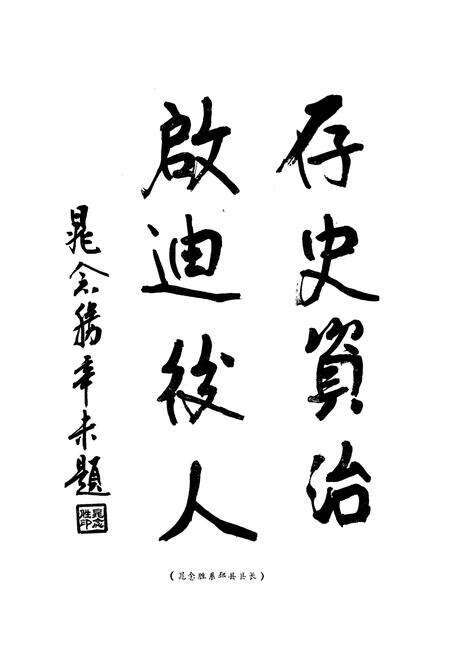 存史資治
啟迪後人
晁念勝辛未題
晁念胜印
(晁念胜系县县长)